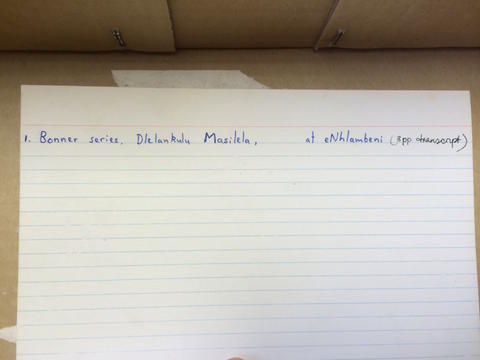 1. Bonner series, Dlelankulu Masilela, at eNhlambeni (8pp. transcript)